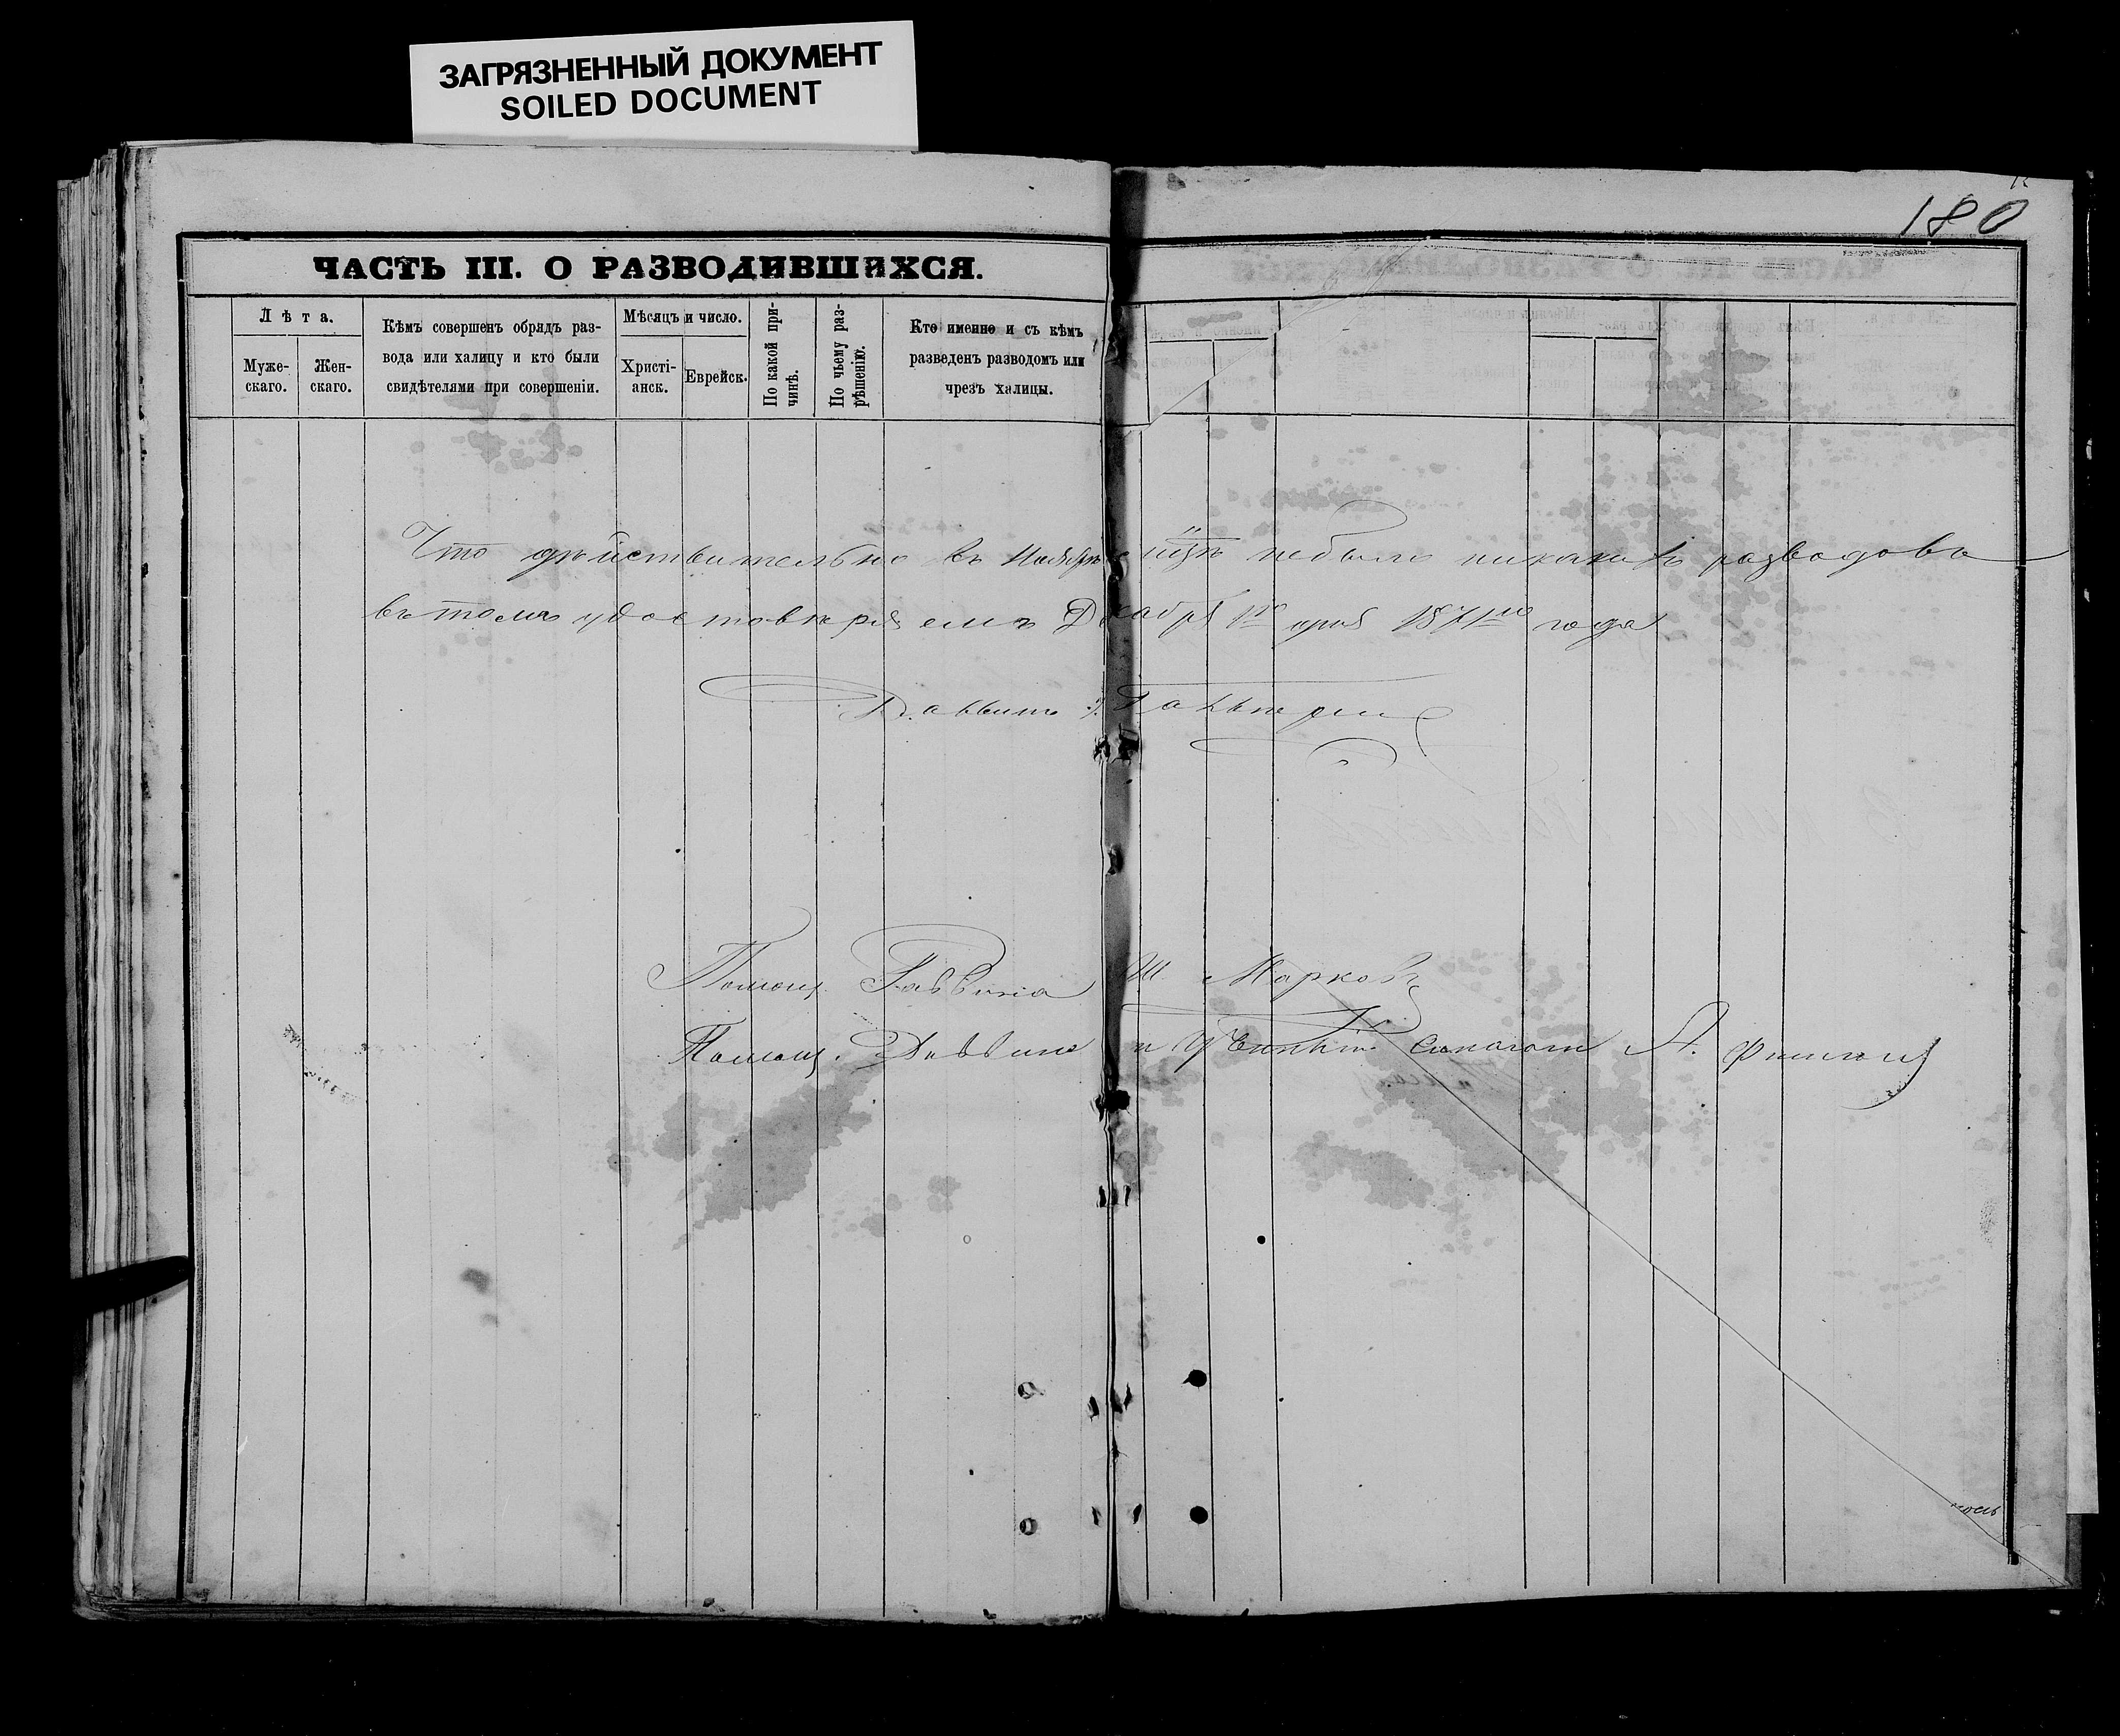 ЗАГРЯЗНЕННЫЙ ДОКУМЕНТ
SOILED DOCUMENT
180
ЧАСТЬ III. О РАЗВОДИВШИХСЯ.
Лѣта.
Муже-
скаго.
Жен-
скаго.
Кѣмъ совершенъ обрядъ раз-
вода или халицу и кто были
свидѣтелями при совершеніи.
Мѣсяцъ и число.
Христі-
анск.
Еврейск.
По какой при-
чинѣ.
По чьему раз-
рѣшенію.
Кто именно и съ кѣмъ
разведенъ разводомъ или
чрезъ халицы.
Что дѣйствительно въ Ноябрѣ небыло никакихъ разводовъ
въ томъ удостовѣряемъ Декабря 1го дня 1871го года
Помощ. Раввина Ш Марковъ
Помощ. Раввина и Синагоги А.